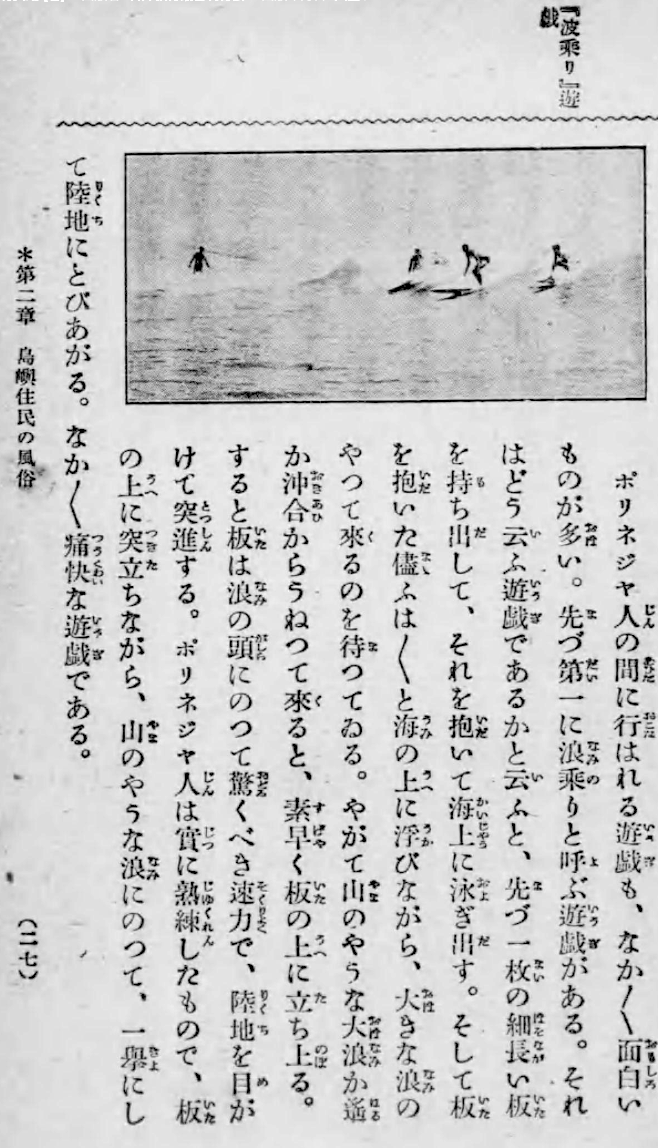 『波乘り』遊
戲
ポリネジヤ人の間に行はれる遊戲も、なか〱面白い
ものが多い。先づ第一に浪乘りと呼ぶ遊戲がある。それ
はどう云ふ遊戲であるかと云ふと、先づ一枚の細長い板
を持ち出して、それを抱いて海上に泳ぎ出す。そして板
を抱いた儘ふは〱と海の上に浮びながら、大きな浪の
やつて來るのを待つてゐる。やがて山のやうな大浪か遙
か沖合からうねつて來ると、素早く板の上に立ち上る。
すると板は浪の頭にのつて驚くべき速力で、陸地を目が
けて突進する。ポリネジヤ人は實に熟練したもので、板
の上に突立ちながら、山のやうな浪にのつて、一擧にし
て陸地にとびあがる。なか〱痛快な遊戲である。
＊第二章　島嶼住民の風俗
（二七）